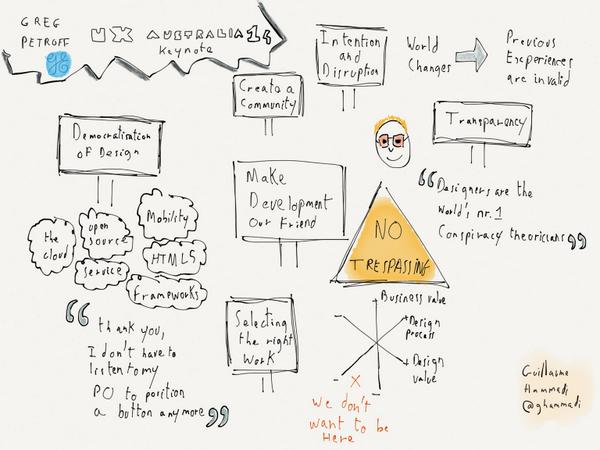 GREG
PETROFF
UX AUSTRALIA 14
Keynote
Intention
and
Disruption
World
Changes
Previous
Experiences
are invalid
Create a
Community
Democratisation
of Design
Transparency
the
cloud
open
source
Mobility
HTML5
service
frameworks
Make
Development
our Friend
NO
TRESPASSING
“Designers are the
World's nr.1
Conspiracy theoricians”
“thank you,
I don't have to
listen to my
PO to position
a button anymore”
Selecting
the right
Work
+ Business value
+ Design
process
+ Design
value
- - -
X
We don't
want to be
Here
Guillaume
Hammadi
@ghammadi